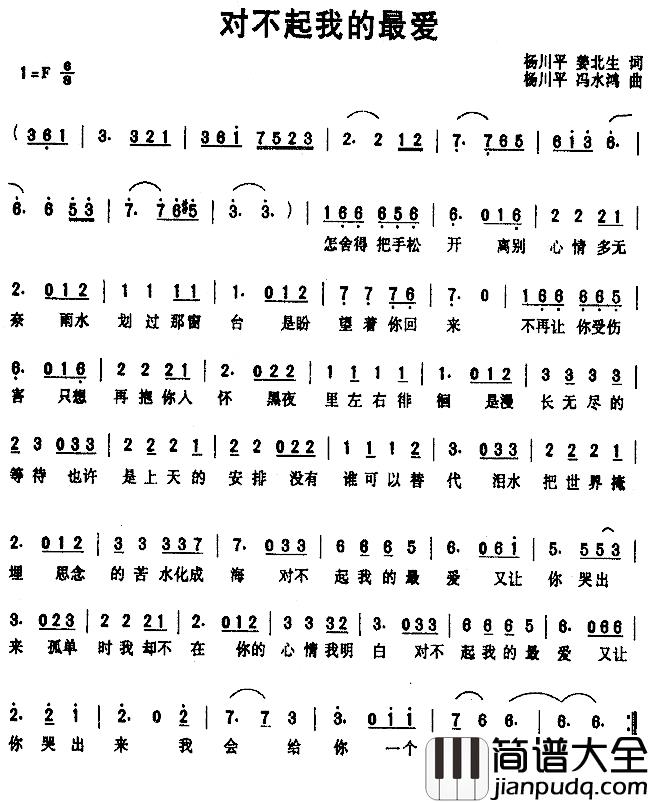 对不起我的最爱
1=F 6/8
杨川平 姜北生 词
杨川平 冯水鸿 曲
( 361 | 3. 321 | 361 7523 | 2. 2 12 | 7. 776 | 613 6. |
6. 6 53 | 7. 76#5 | 3. 3. ) | 166 656 | 6. 016 | 22 21 |
怎舍得 把手松 开 离别 心情多无
2. 012 | 11 11 | 1. 012 | 77 76 | 7. 0 | 166 665 |
奈 雨水 划过那窗 台 是盼 望着你回 来 不再让 你受伤
6. 016 | 22 21 | 2. 022 | 11 11 | 1. 012 | 33 33 |
害 只想 再抱你入 怀 黑夜 里左右徘 徊 是漫 长无尽的
23 033 | 22 21 | 22 022 | 11 12 | 3. 033 | 22 21 |
等待 也许 是上天的 安排 没有 谁可以替 代 泪水 把世界掩
2. 012 | 33 337 | 7. 033 | 66 65 | 6. 061 | 5. 553 |
埋 思念 的苦水化成 海 对不 起我的最 爱 又让 你哭出
3. 023 | 22 221 | 2. 012 | 33 32 | 3. 033 | 66 65 | 6. 066 |
来 孤单 时我却不 在 你的 心情我明 白 对不 起我的最 爱 又让
2. 2 1 | 2. 02 | 7. 7 3 | 3. 011 | 7 66 | 6. 6. :||
你哭出 来 我 会 给 你 一个
简谱大全
jianpudq.com